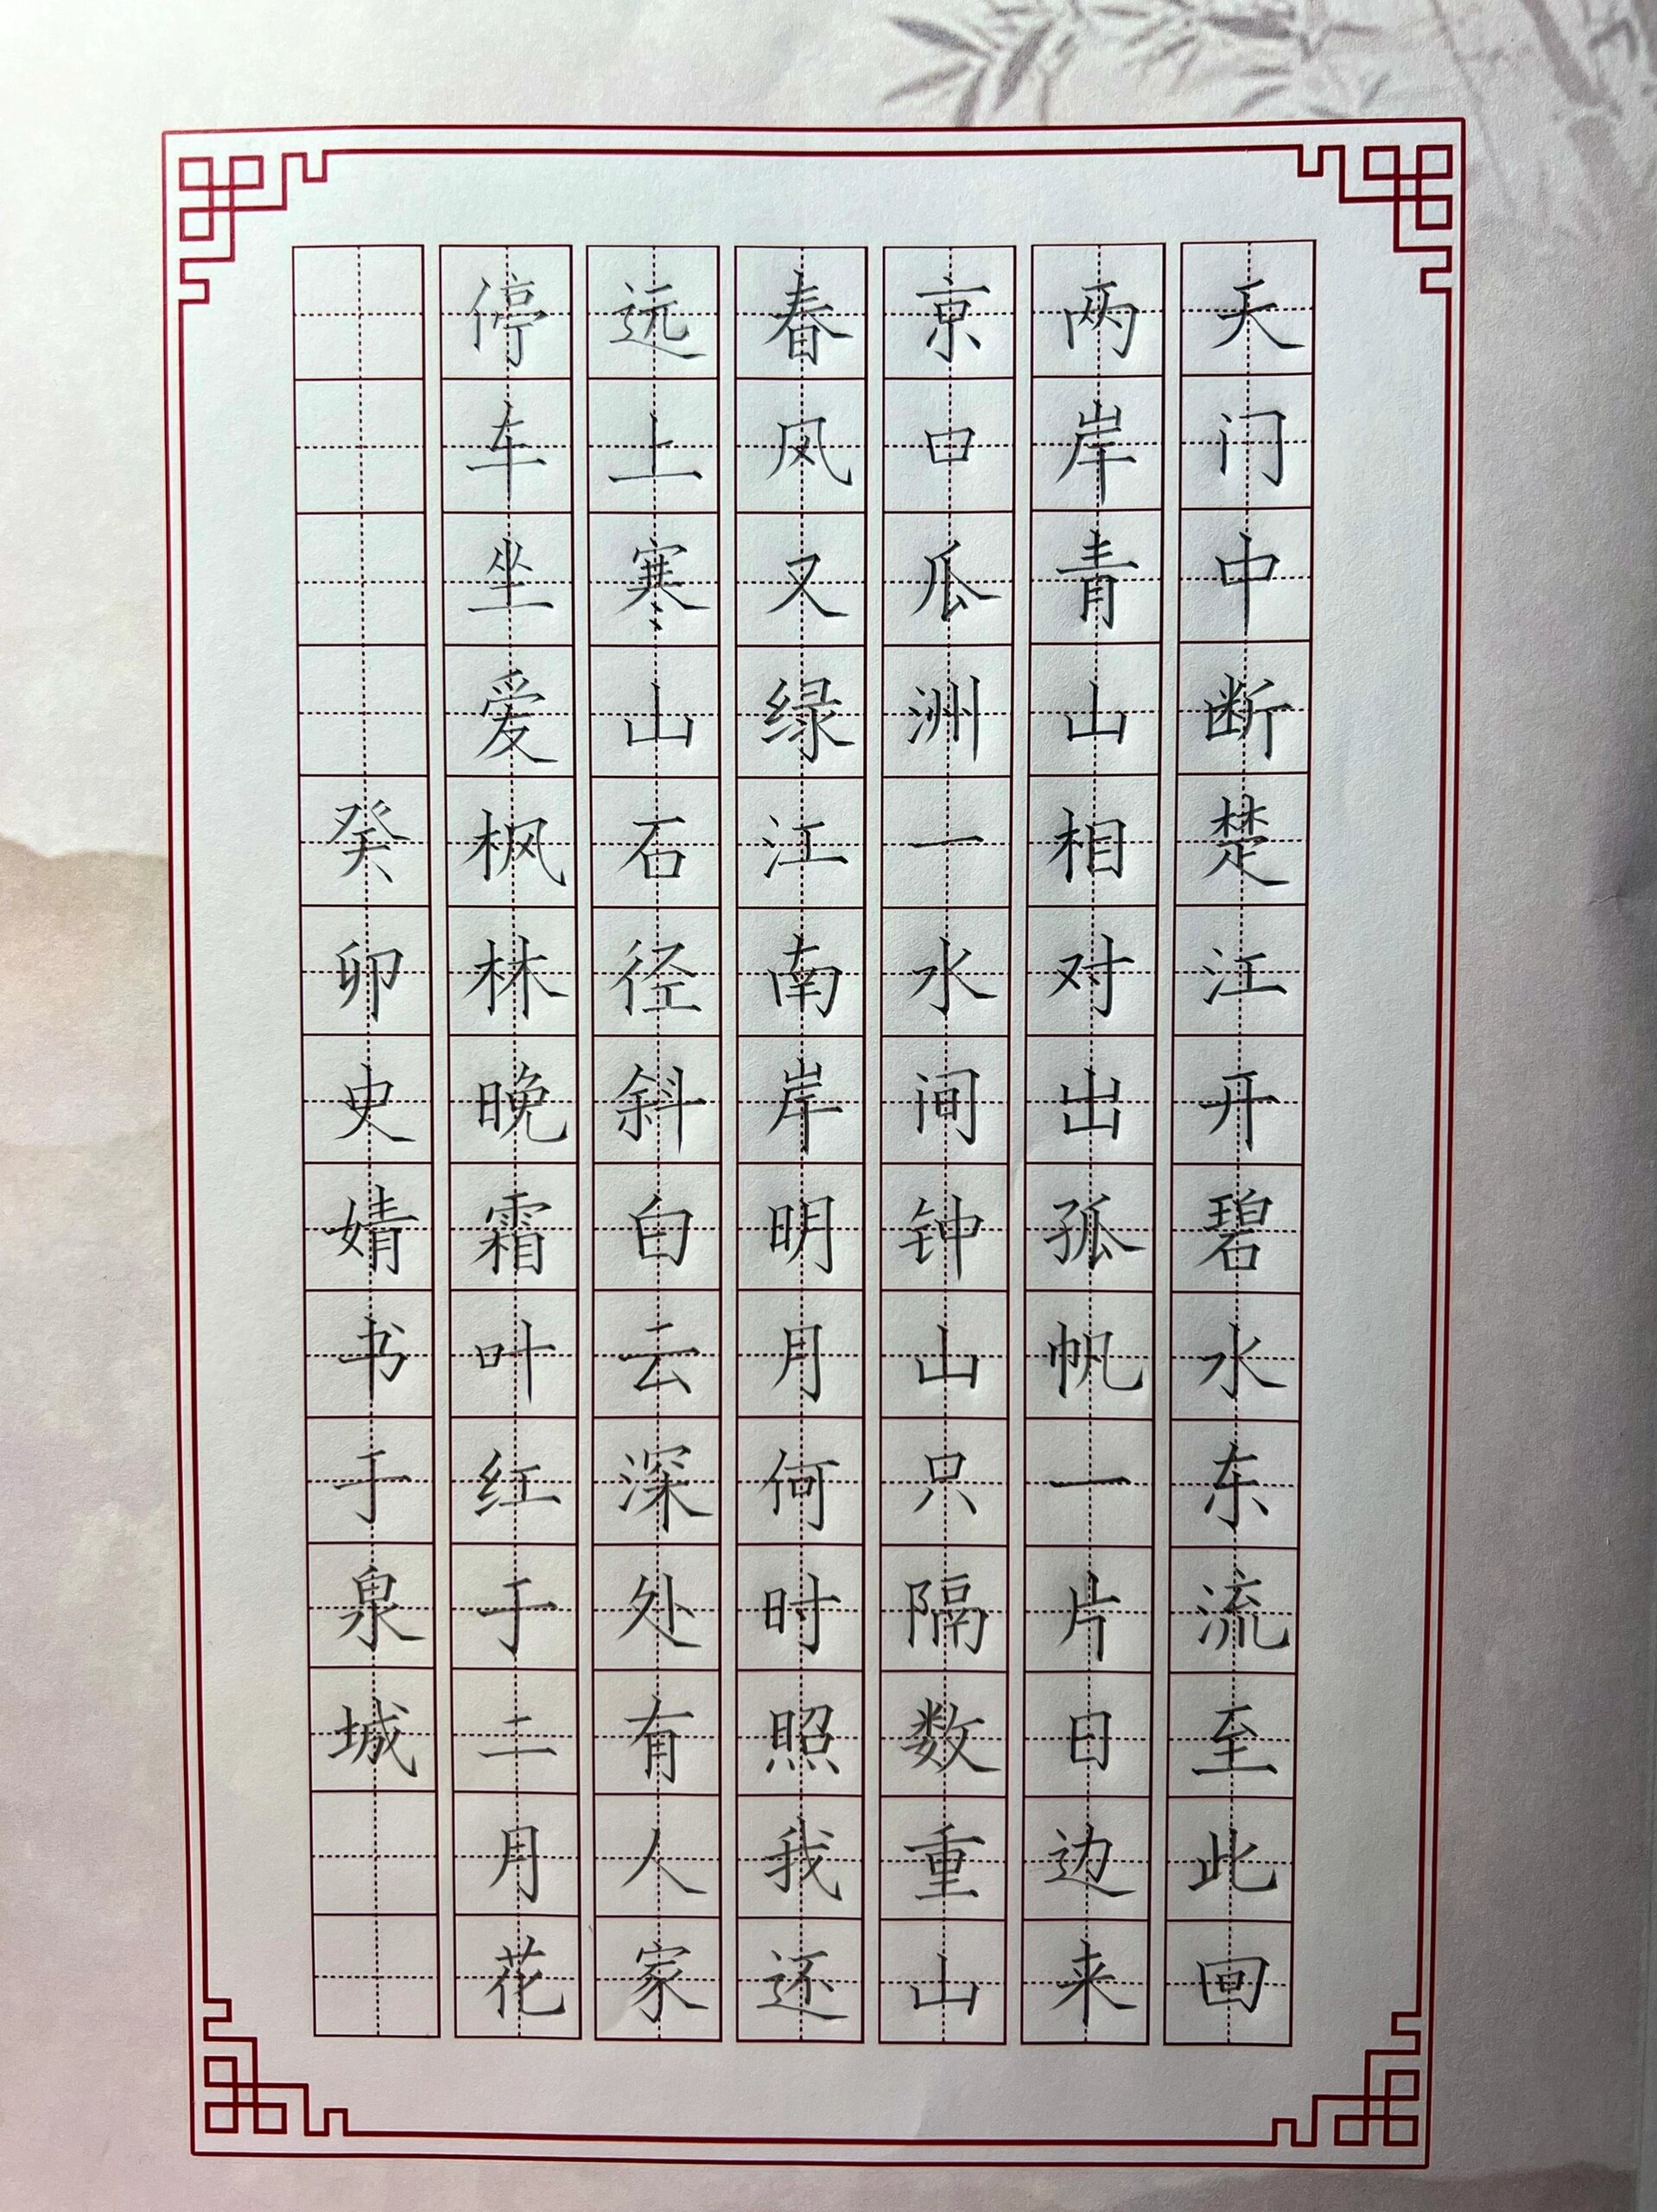 天门中断楚江开碧水东流至此回
两岸青山相对出孤帆一片日边来
京口瓜洲一水间钟山只隔数重山
春风又绿江南岸明月何时照我还
远上寒山石径斜白云深处有人家
停车坐爱枫林晚霜叶红于二月花
癸卯史婧书于泉城